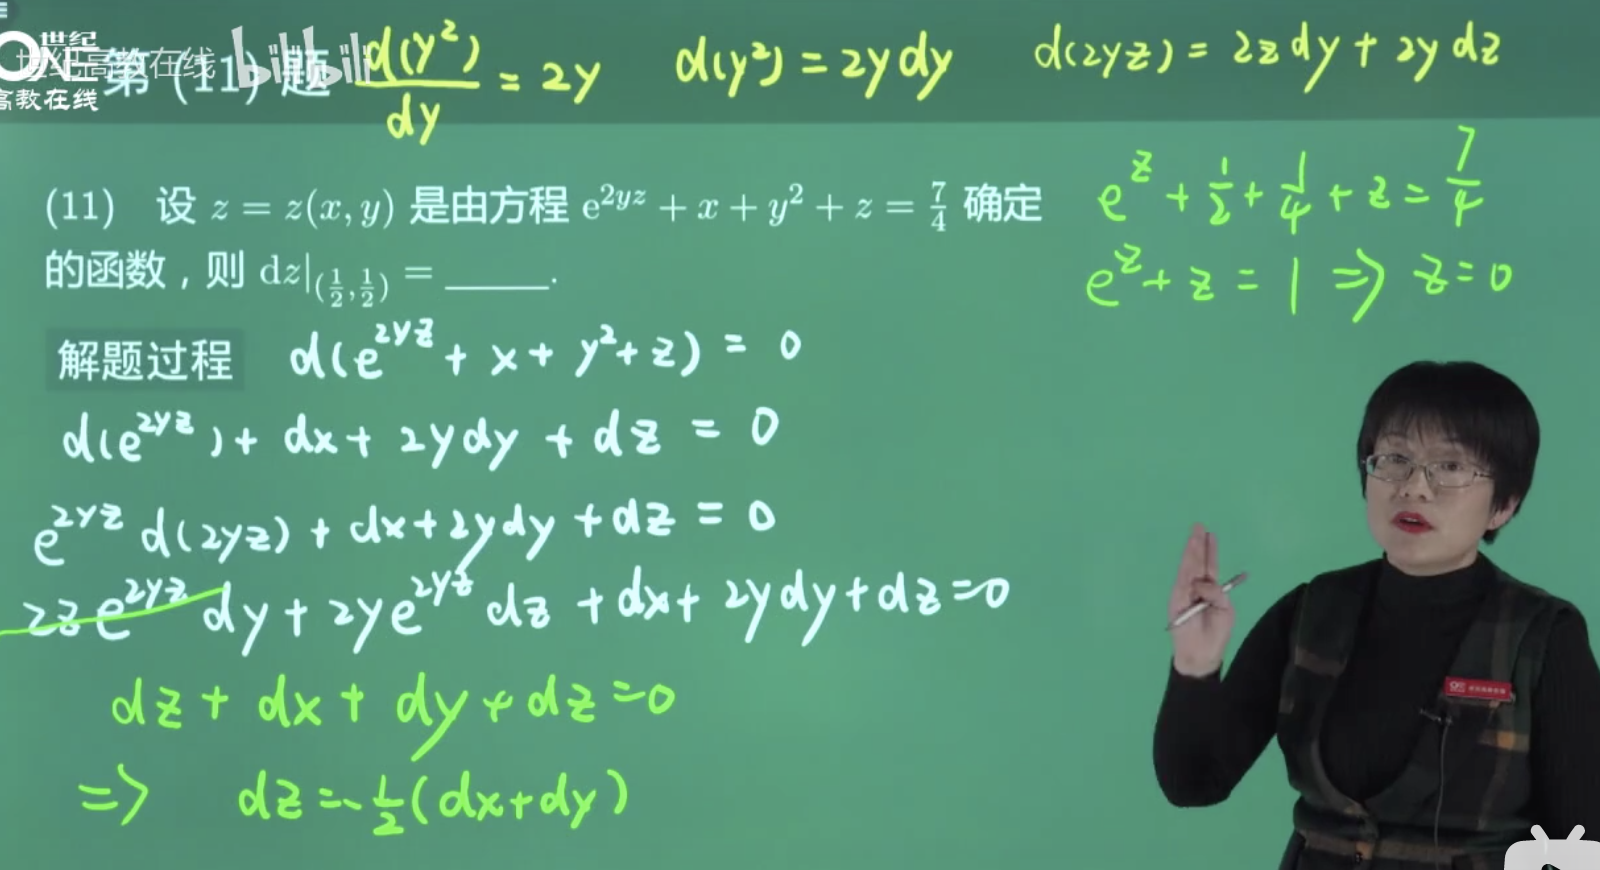 世纪高教在线 bilibili
世纪
高教在线
第 (11) 题 d(y²)/dy = 2y d(y²) = 2y dy d(2yz) = 2z dy + 2y dz
(11) 设 z = z(x, y) 是由方程 e^{2yz} + x + y² + z = 7/4 确定
的函数，则 dz|_{(1/2, 1/2)} = ______.
e^z + 1/2 + 1/4 + z = 7/4
e^z + z = 1 ⇒ z = 0
解题过程 d(e^{2yz} + x + y² + z) = 0
d(e^{2yz}) + dx + 2y dy + dz = 0
e^{2yz} d(2yz) + dx + 2y dy + dz = 0
2z e^{2yz} dy + 2y e^{2yz} dz + dx + 2y dy + dz = 0
dz + dx + dy + dz = 0
⇒ dz = -1/2 (dx + dy)